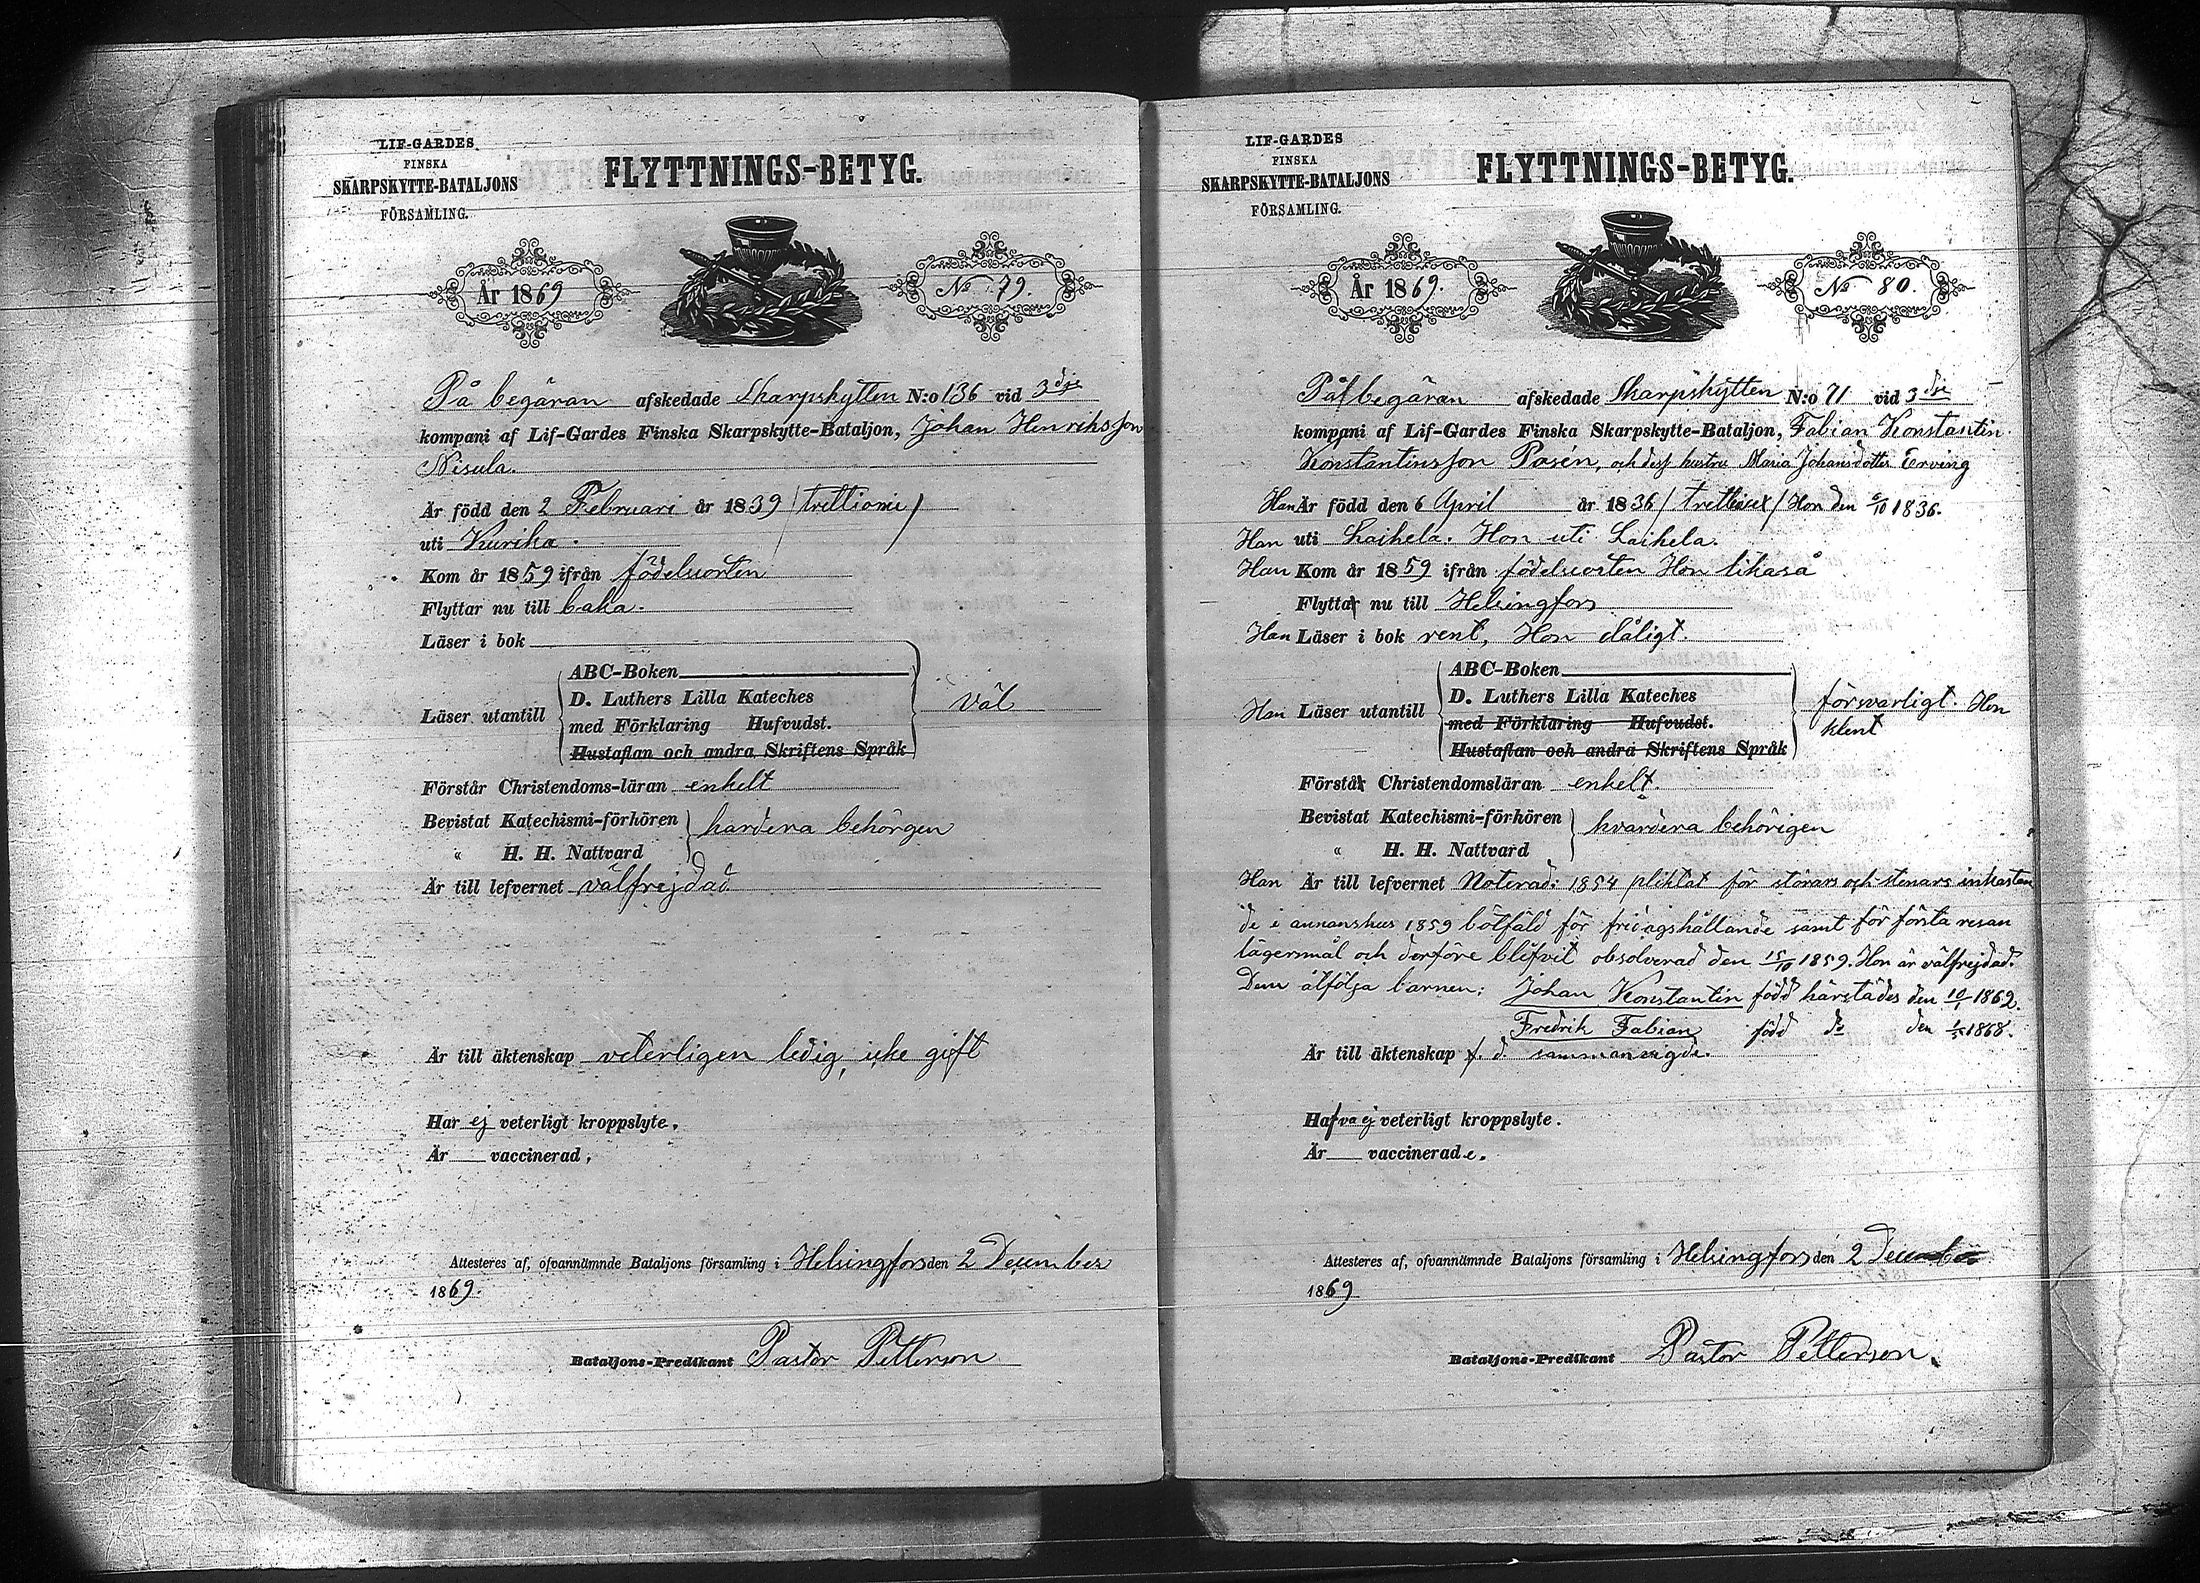 LIF-GARDES
FINSKA
SKARPSKYTTE-BATALJONS
FÖRSAMLING.
FLYTTNINGS-BETYG.
År 1869
No 79.
På begäran afskedade Skarpskytten N:o 136 vid 3dje
kompani af Lif-Gardes Finska Skarpskytte-Bataljon, Johan Henriksson
Nisula.
Är född den 2 Februari år 1839 /trettionie/
uti Kurika.
Kom år 1859 ifrån födelseorten
Flyttar nu till baka.
Läser i bok
Läser utantill
ABC-Boken
D. Luthers Lilla Kateches
med Förklaring Hufvudst.
Hustaflan och andra Skriftens Språk
väl
Förstår Christendoms-läran enkelt
Bevistat Katechismi-förhören
" H. H. Nattvard
hardera behörgen
Är till lefvernet välfrejdad
Är till äktenskap veterligen ledig, icke gift
Har ej veterligt kroppslyte.
Är vaccinerad,
Attesteres af, ofvannämnde Bataljons församling i Helsingfors den 2 December
1869.
Bataljons-Predikant Pastor Petterson
LIF-GARDES
FINSKA
SKARPSKYTTE-BATALJONS
FÖRSAMLING.
FLYTTNINGS-BETYG.
År 1869.
No 80.
På begäran afskedade Skarpskytten N:o 71 vid 3dje
kompani af Lif-Gardes Finska Skarpskytte-Bataljon, Fabian Konstantin
Konstantinsson Posén, och dess hustru Maria Johansdotter Erving
Han Är född den 6 April år 1836 /trettisex/ Hon den 5/10 1836.
Han uti Laihela. Hon uti Laihela.
Han Kom år 1859 ifrån födelseorten Hon likaså
Flytta nu till Helsingfors
Han Läser i bok rent, Hon dåligt.
Han Läser utantill
ABC-Boken
D. Luthers Lilla Kateches
med Förklaring Hufvudst.
Hustaflan och andra Skriftens Språk
försvarligt. Hon
klent
Förstå Christendomsläran enkelt.
Bevistat Katechismi-förhören
" H. H. Nattvard
hvardera behörigen
Han Är till lefvernet Noterad: 1854 pliktat för störars och stenars inkastan
de i annans hus 1859 bötfäld för fridagshållande samt för första resan
lägersmål och derföre blifvit absolverad den 15/10 1859. Hon är välfrejdad.
Dem åtfölja barnen: Johan Konstantin född härstädes den 10/1 1862.
Fredrik Fabian född do den 1/5 1868.
Är till äktenskap f. d. sammanvigde.
Hafva ej veterligt kroppslyte.
Är vaccinerade.
Attesteres af, ofvannämnde Bataljons församling i Helsingfors den 2 December
1869
Bataljons-Predikant Pastor Petterson.